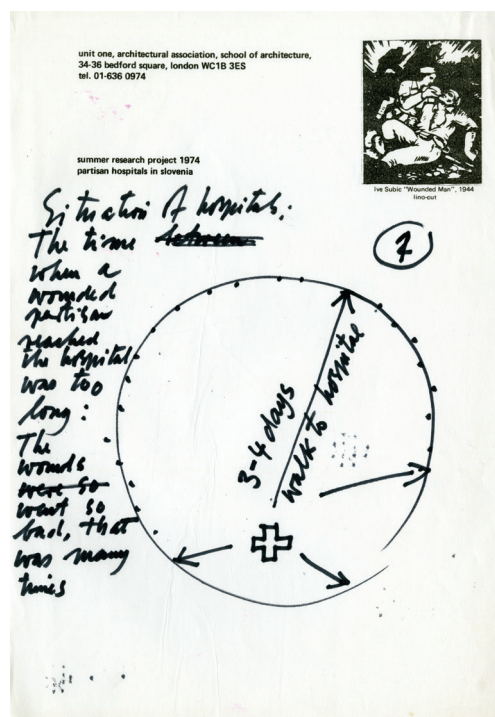 unit one, architectural association, school of architecture,
34-36 bedford square, london WC1B 3ES
tel. 01-636 0974
Ive Subic "Wounded Man", 1944
lino-cut
summer research project 1974
partisan hospitals in slovenia
Situation of hospitals:
The time between
when a
wounded
partisan
reached
the hospital
was too
long:
The
wounds
were so
went so
bad, that
was many
times
3-4 days
walk to hospital